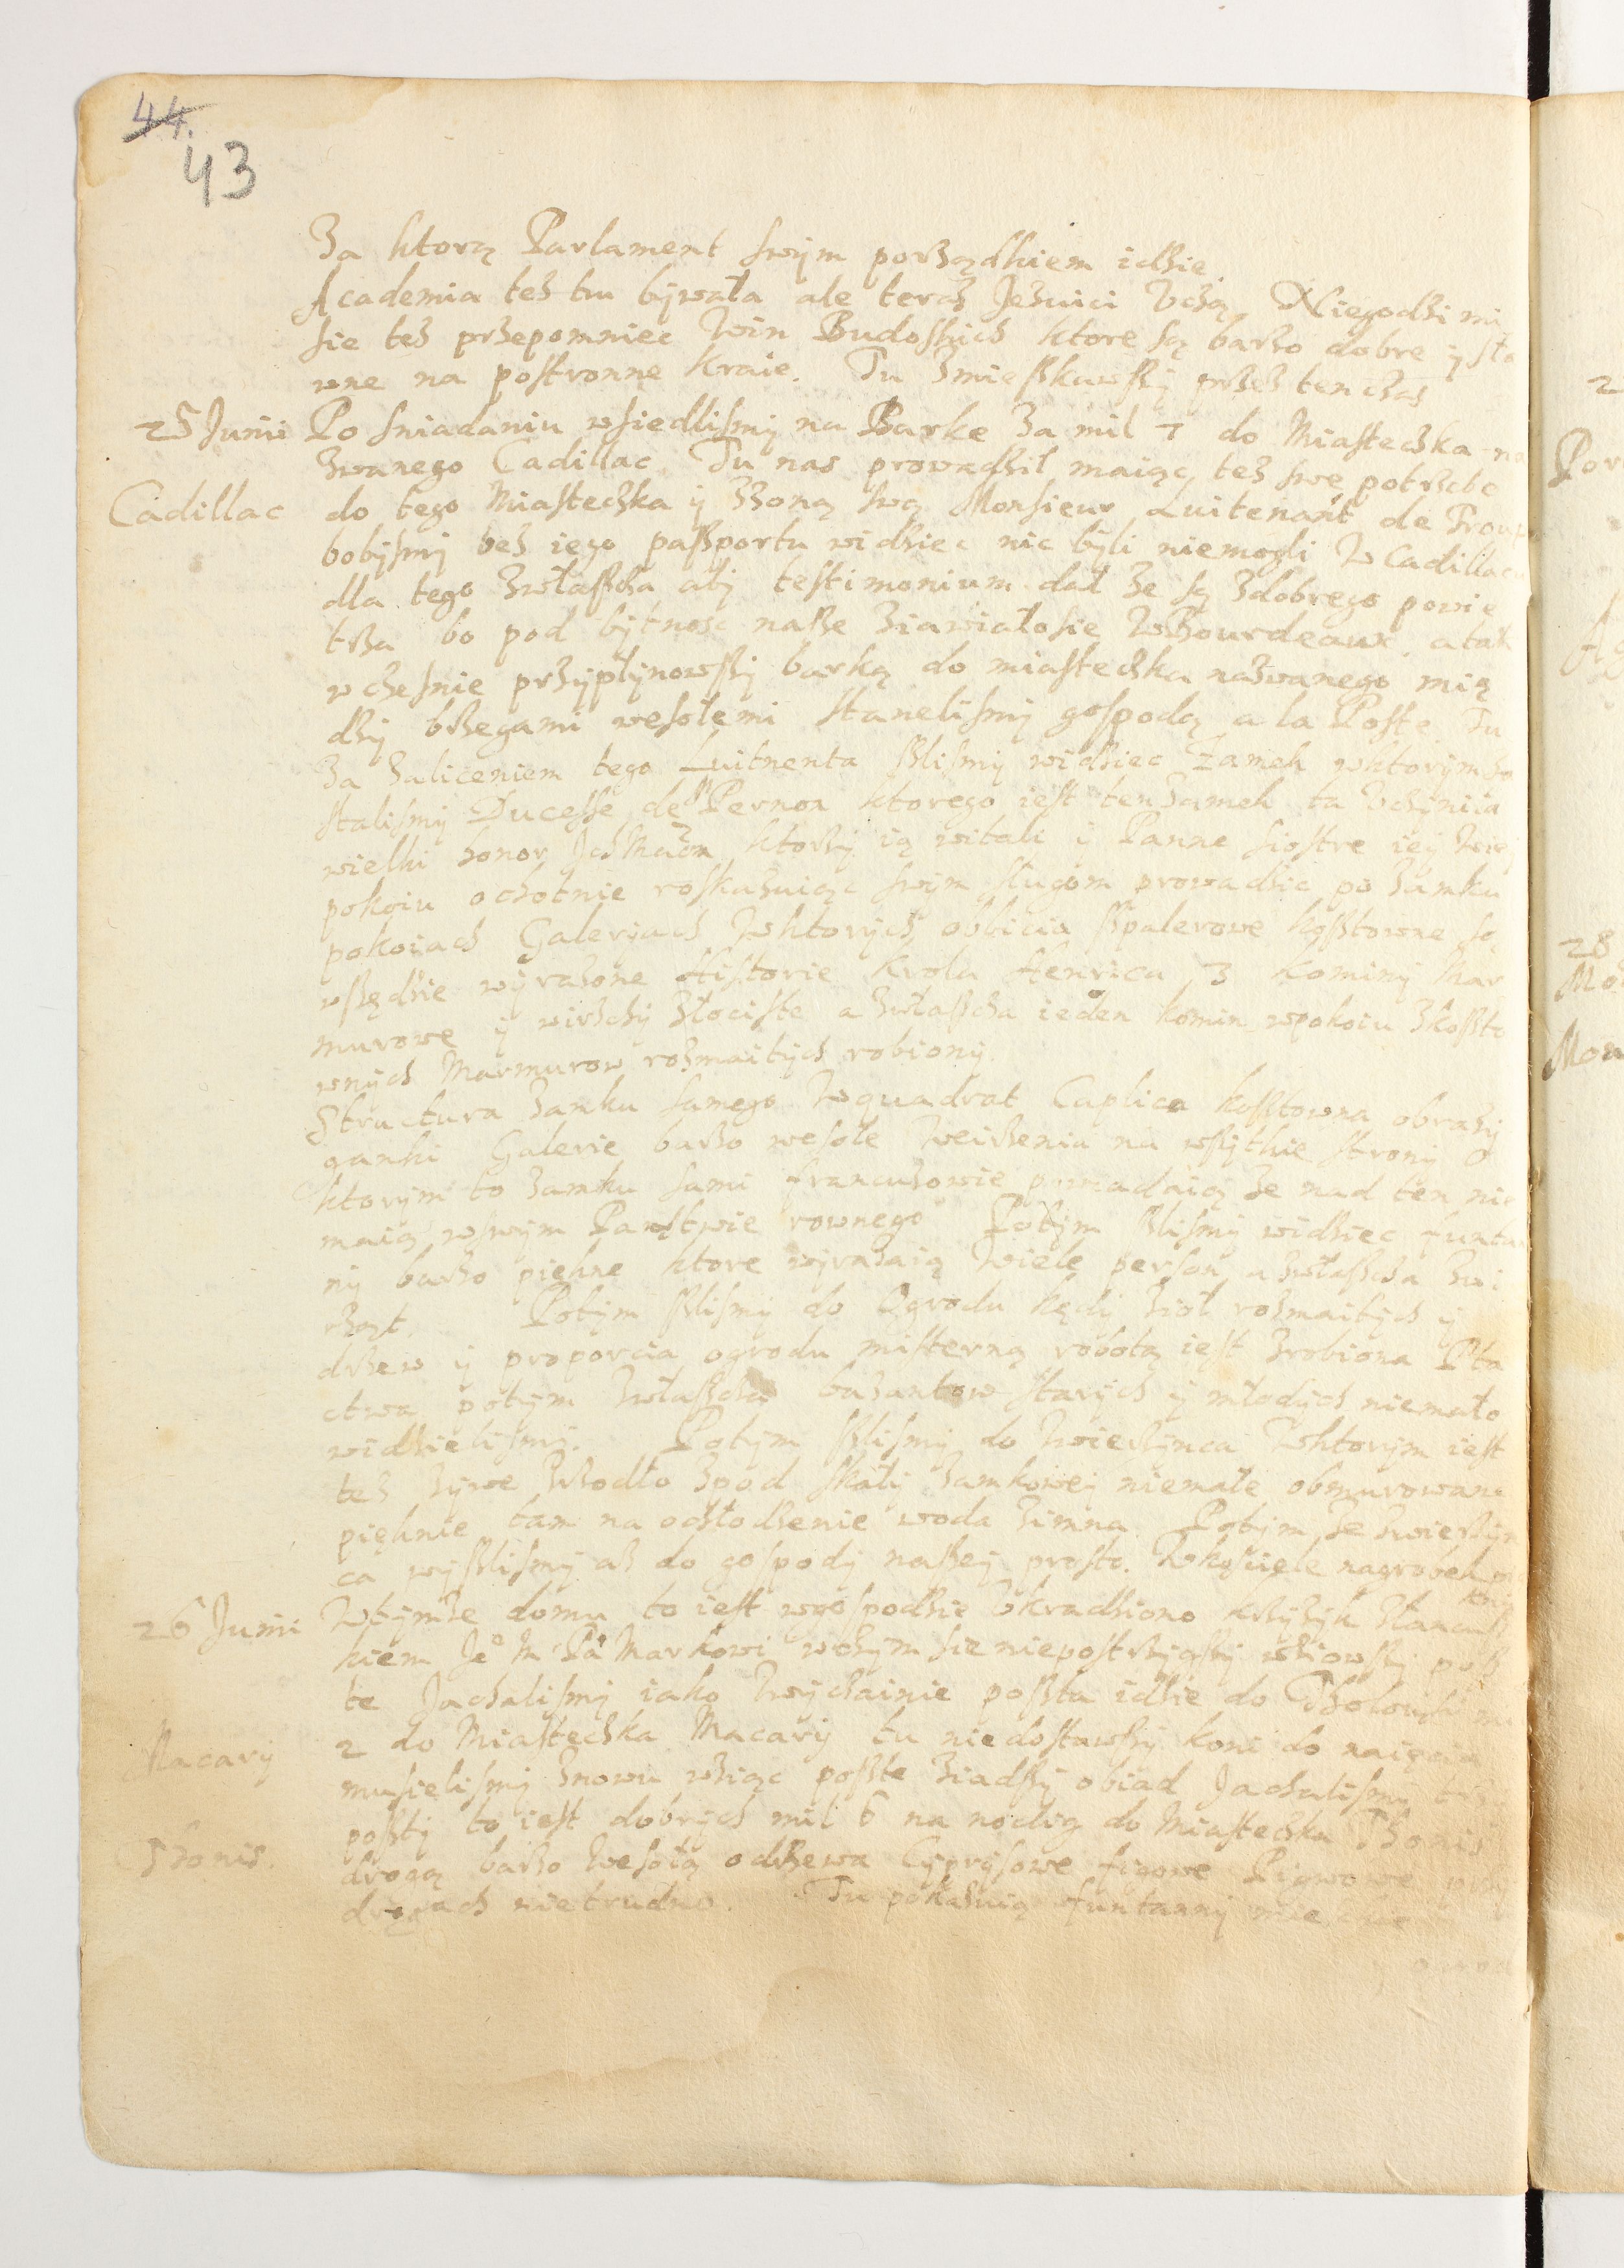 44.
43
Za ktorą Parlament swym porządkiem idzie.
Academia tesz tu bywała ale teraz Jezuici Vczą. Niegodzi mi
sie tesz przepomniec Win Budoskich ktore są barzo dobre y sła
wne na postronne kraie. Tu zmieszkawszy przez ten czas
25 Junii Po sniadaniu wsiedlismy na Barke za mil 7 do Miasteczka na
zwanego Cadillac. Tu nas prowadził maiąc tesz swę potrzebe
Cadillac do tego Miasteczka y Zzoną swą Monsieur Luitenant de
bobysmy bez iego paszportu widziec nic byli niemogli W Cadillacu
dla tego zwłaszcza aby testimonium dał ze są zdobrego powie
trza bo pod bytnosc nasze ziawiałosie WBourdeaux. a tak
wczesnie przypłynowszy barką do miasteczka nazwanego mię
dzy brzegami wesołemi stanelismy gospodą a la Poste. Tu
za zaliceniem tego Luitnenta szlismy widziec Zamek wktorym za
stalismy Ducesse de Pernon ktorego iest ten zamek ta Vczynila
wielki honor ktorzy ią witali i Panne siostre iey Wiey
pokoiu ochotnie roskazuiąc swym sługom prowadzic po zamku
pokoiach Galeryach Wktorych obbicia szpalerowe kosztowne są
wszędzie wyrazone Historie Krola Henrica 3 kominy Mar
murowe y wirzchy złociste a zwłaszcza ieden komin wpokoiu zkoszto
wnych Marmurow rozmaitych robiony.
Structura Zamku samego Wquadrat Caplica kosztowna obrazy
ganki Galerie barzo wesołe Weirzenia na wszytkie strony O
ktorym to zamku sami francuzowie powiadaią ze nad ten nie
maią wswym Panstwie rownego Potym szlismy widziec funta
ny barzo piękne ktore wyrazaią Wiele person a zwłaszcza zwi
rzząt. Potym szlismy do Ogrodu kędy zioł rozmaitych y
drzew y proporcia ogrodu misterną robotą iest zrobiona Pta
ctwa potym zwłaszcza bazantow starych y młodych niemało
widzielismy. Potym szlismy do Zwierzynca Wktorym iest
tesz zywe zrzodło zpod skały zamkowey niemałe obmurowane
pięknie tam na ochłodzenie woda zimna. Potym ze zwierzyn
ca wyszlismy asz do gospody naszey prosto. Wkosciele nagrobek
26 Junii Wtymze domu to iest wgospodzie Vkradziono krzyzyk złancusz
kiem Je⁰ M Pa Markowi wczym sie niepostrzygszy wziowszy posz
te Jachalismy iako Zwyczainie poszta idzie do
Macary 2 do Miasteczka Macary tu niedostawszy koni do naięcia
musielismy znowu wziąc poszte ziadszy obiad Jachalismy
poszty to iest dobrych mil 6 na nocleg do Miasteczka Thonis
Thonis. drogą barzo Wesołą odrzewa Cyprysowe figowe Pigwowe przy
drogach nietrudno. Tu pokazuią funtanny